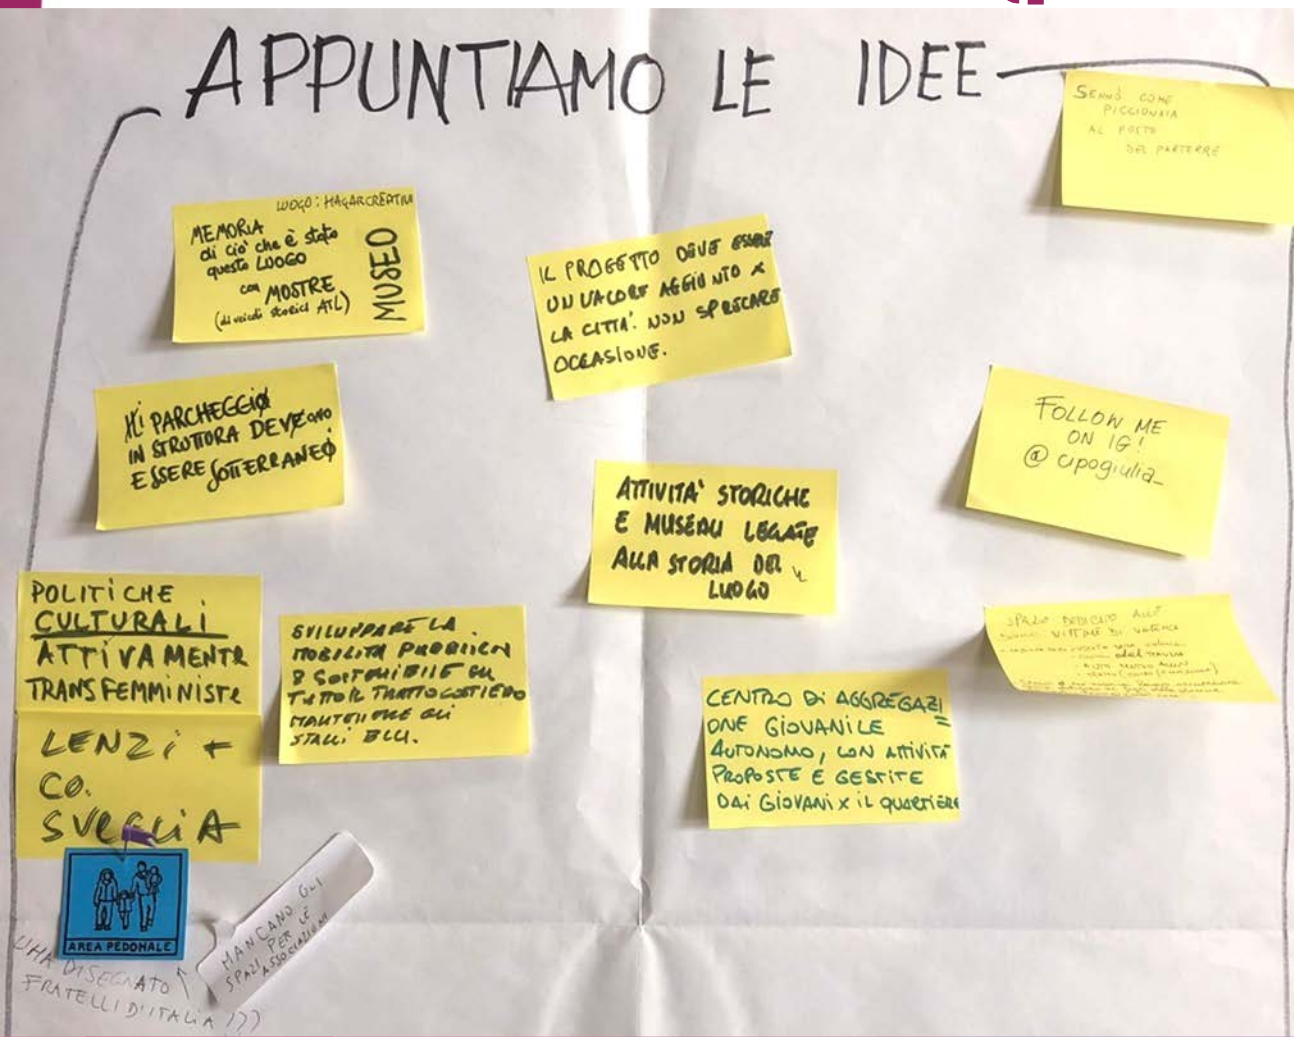 APPUNTIAMO LE IDEE
SENNÒ COME
PICCIONAIA
AL POSTO
DEL PARTERRE
LUOGO: HAGARCREATIVI
MEMORIA
di ciò che è stato
questo LUOGO
con MOSTRE
(di veicoli storici ATL)
MUSEO
IL PROGETTO DEVE ESSERE
UN VALORE AGGIUNTO X
LA CITTA'. NON SPRECARE
OCCASIONE.
I PARCHEGGI
IN STRUTTURA DEVONO
ESSERE SOTTERRANEI
FOLLOW ME
ON IG!
@cipogiulia_
ATTIVITA' STORICHE
E MUSEALI LEGATE
ALLA STORIA DEL
LUOGO
POLITICHE
CULTURALI
ATTIVAMENTE
TRANSFEMMINISTE
LENZI +
CO.
SVEGLIA
SVILUPPARE LA
MOBILITÀ PUBBLICA
E SOSTENIBILE SU
TUTTO IL TRATTO COSTIERO
MANTENIONE GLI
STALLI BLU.
SPAZIO DEDICATO ALLE
DONNE VITTIME DI VIOLENZA
CENTRO DI AGGREGAZI
ONE GIOVANILE
AUTONOMO, CON ATTIVITÀ
PROPOSTE E GESTITE
DAI GIOVANI X IL QUARTIERE
AREA PEDONALE
MANCANO GLI
SPAZI PER LE
ASSOCIAZIONI
L'HA DISEGNATO
FRATELLI D'ITALIA !??